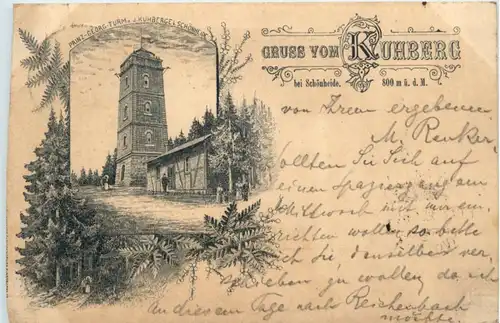 PRINZ-GEORG-TURM a. KUHBERGE b. SCHÖNHEIDE
GRUSS VOM KUHBERG
bei Schönheide. 800 m ü. d. M.
von Ihrem ergebenen
M.
Sollten Sie Sich auf
einen Spaziergang am
Mittwoch mit mir ein
richten wollen so bitte
ich Sie, denselben ver
schieben zu wollen, da ich
an diesem Tage nach Reichenbach
möchte.